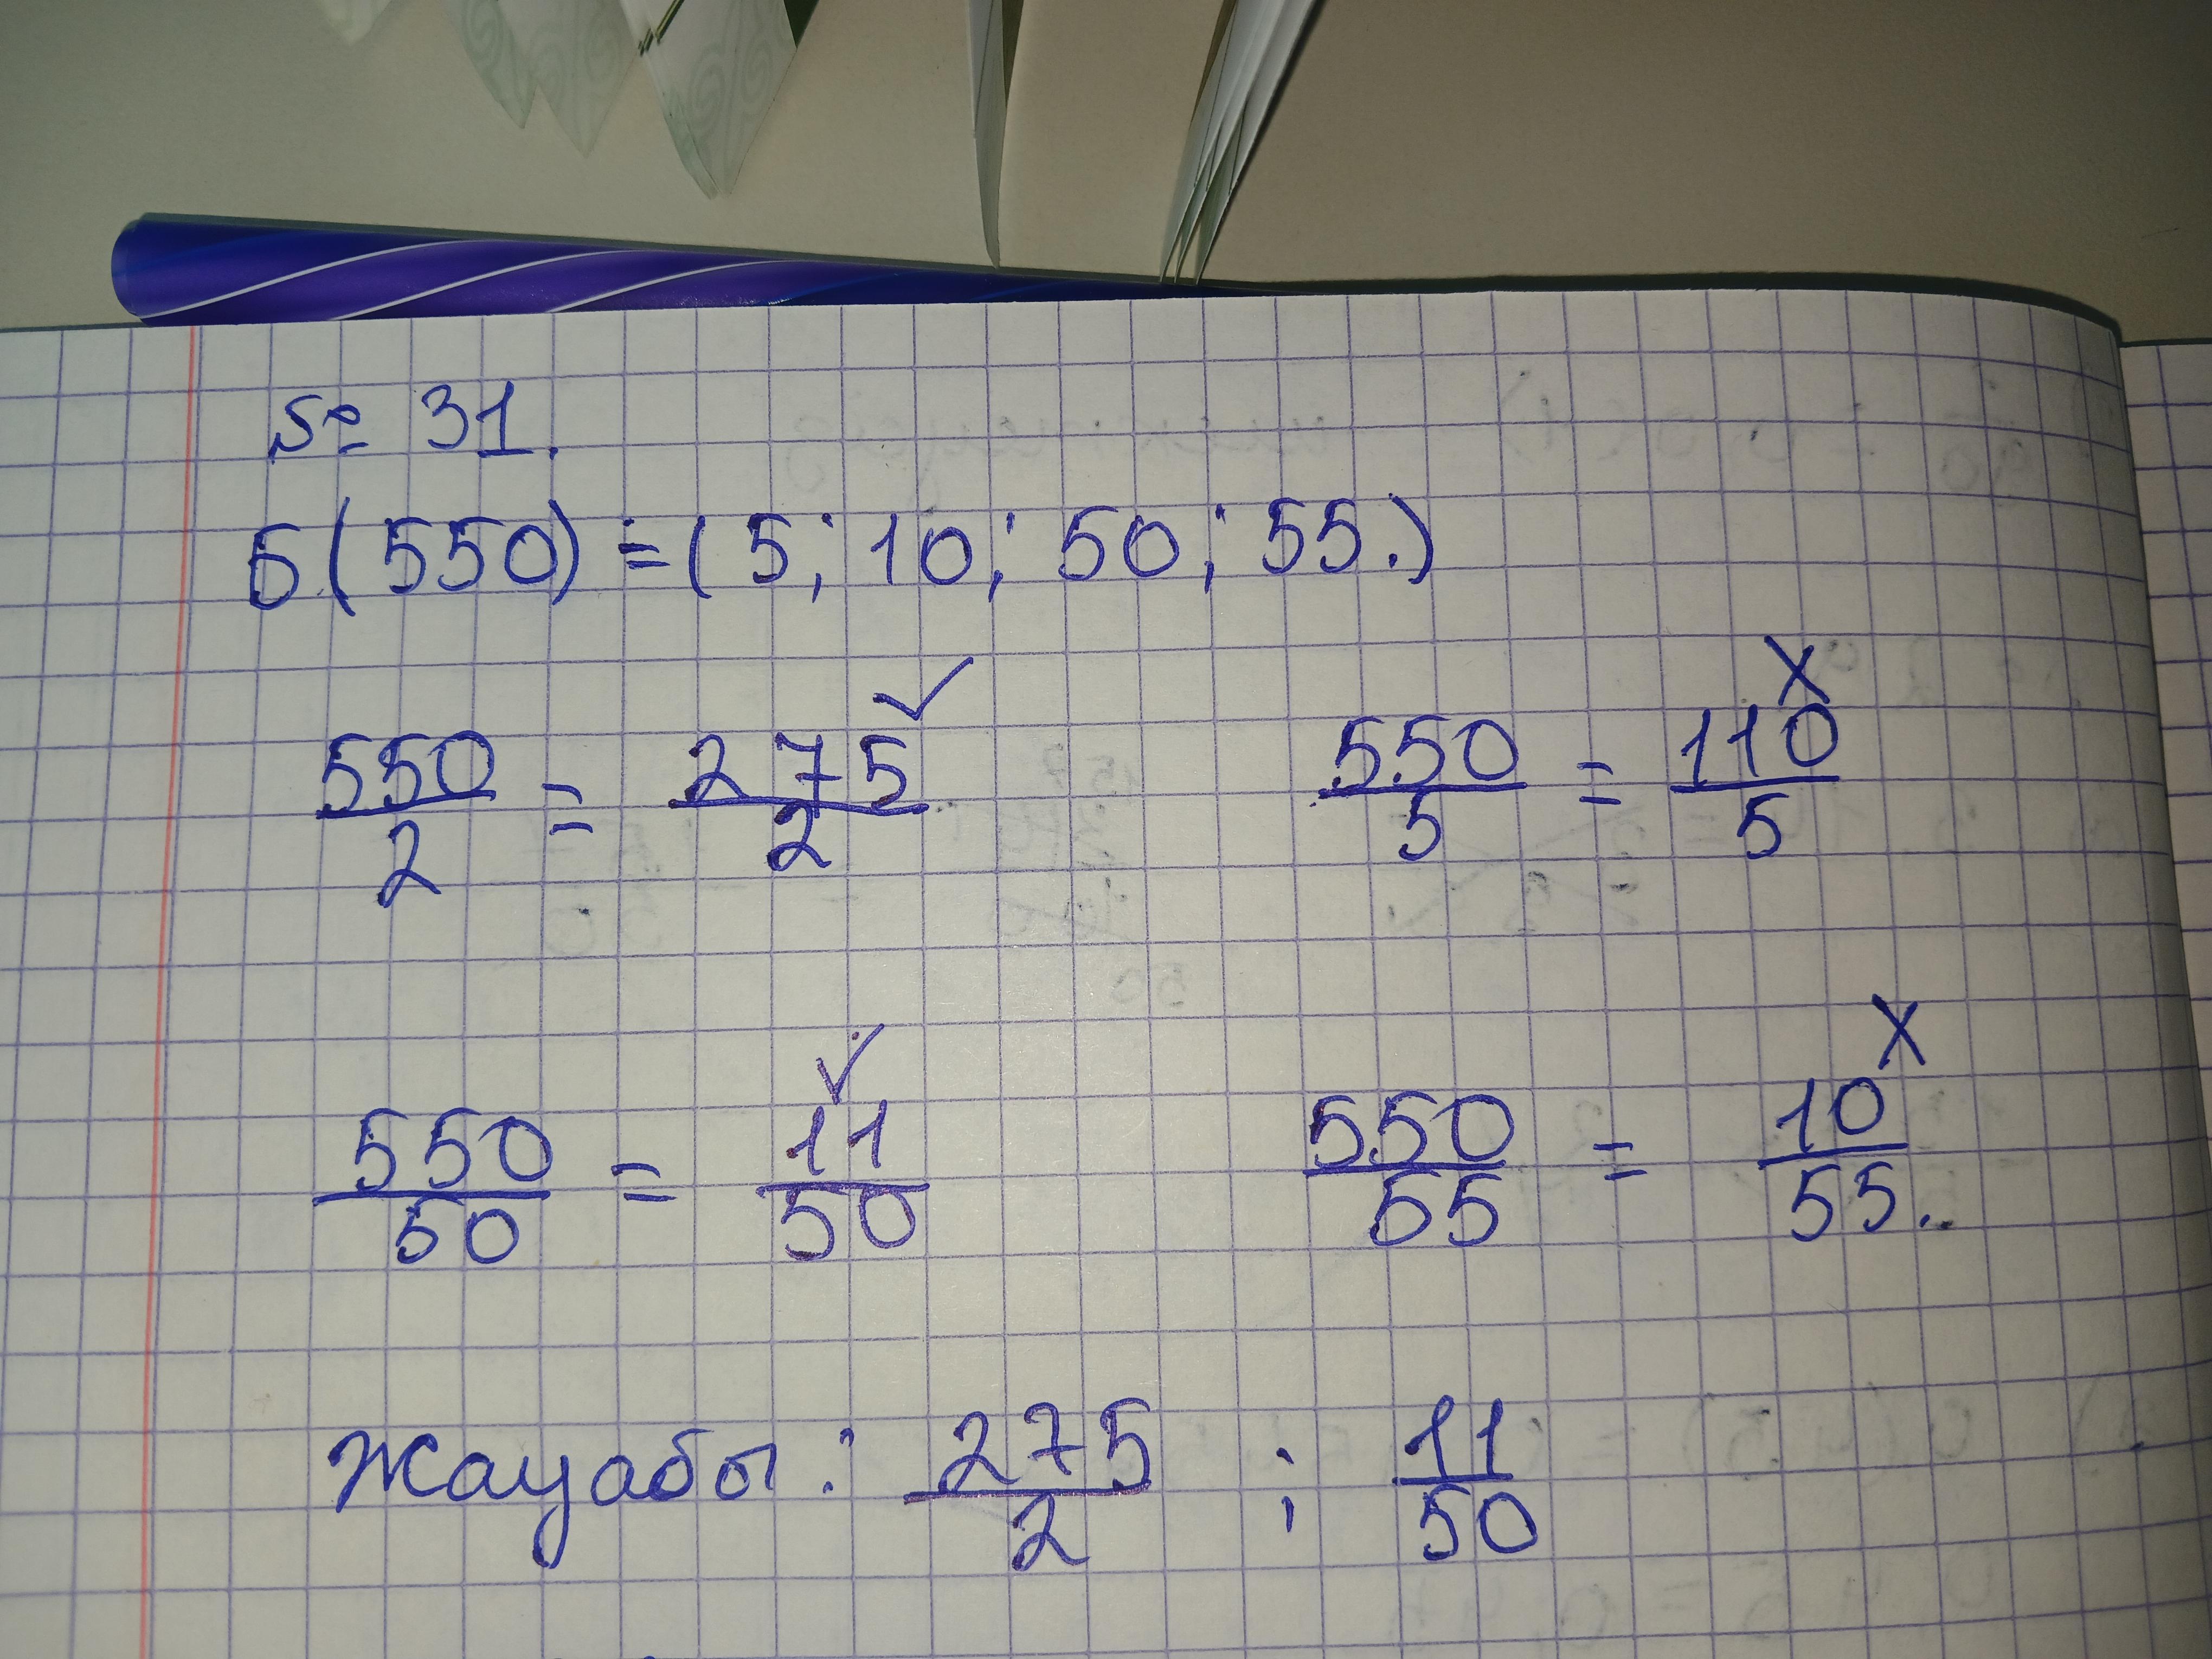 № 31.
Б(550) = (5; 10; 50; 55.)
550/2 = 275/2 ✓ 550/5 = 110/5 X
550/50 = 11/50 ✓ 550/55 = 10/55.. X
Жауабы: 275/2 ; 11/50